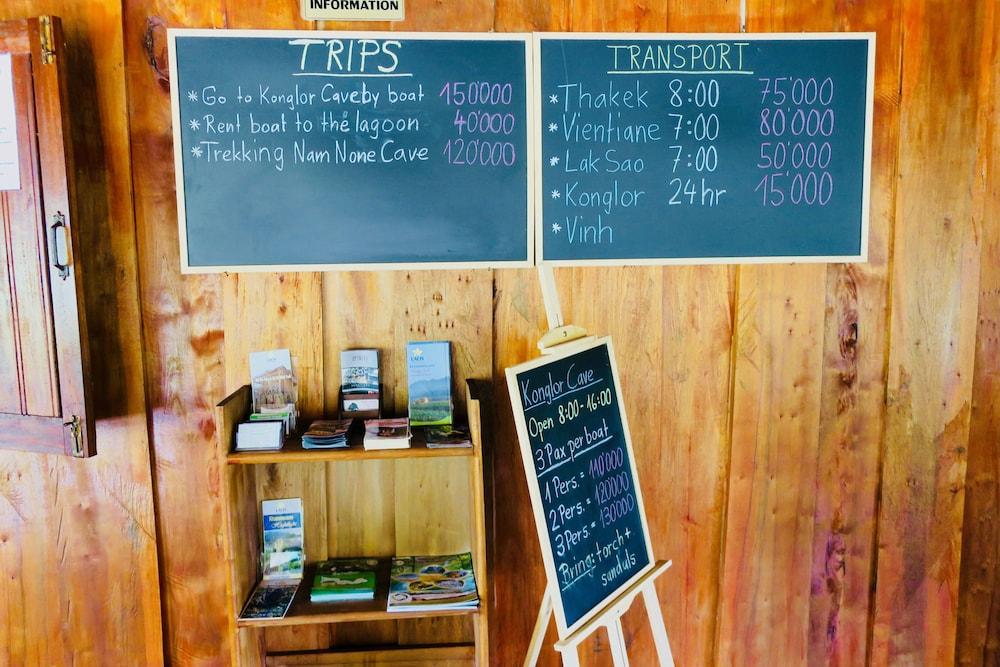 INFORMATION
TRIPS
* Go to Konglor Caveby boat 150'000
* Rent boat to the lagoon 40'000
* Trekking Nam None Cave 120'000
TRANSPORT
* Thakek 8:00 75'000
* Vientiane 7:00 80'000
* Lak Sao 7:00 50'000
* Konglor 24hr 15'000
* Vinh
LAOS
Konglor Cave
Open 8:00 - 16:00
3 Pax per boat
1 Pers. = 110'000
2 Pers. = 120'000
3 Pers. = 130'000
Bring: torch +
sandals